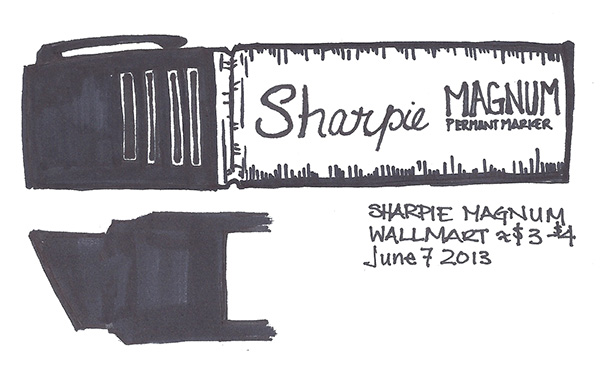 Sharpie MAGNUM
PERMANT MARKER
SHARPIE MAGNUM
WALLMART ≈$3-$4
June 7 2013